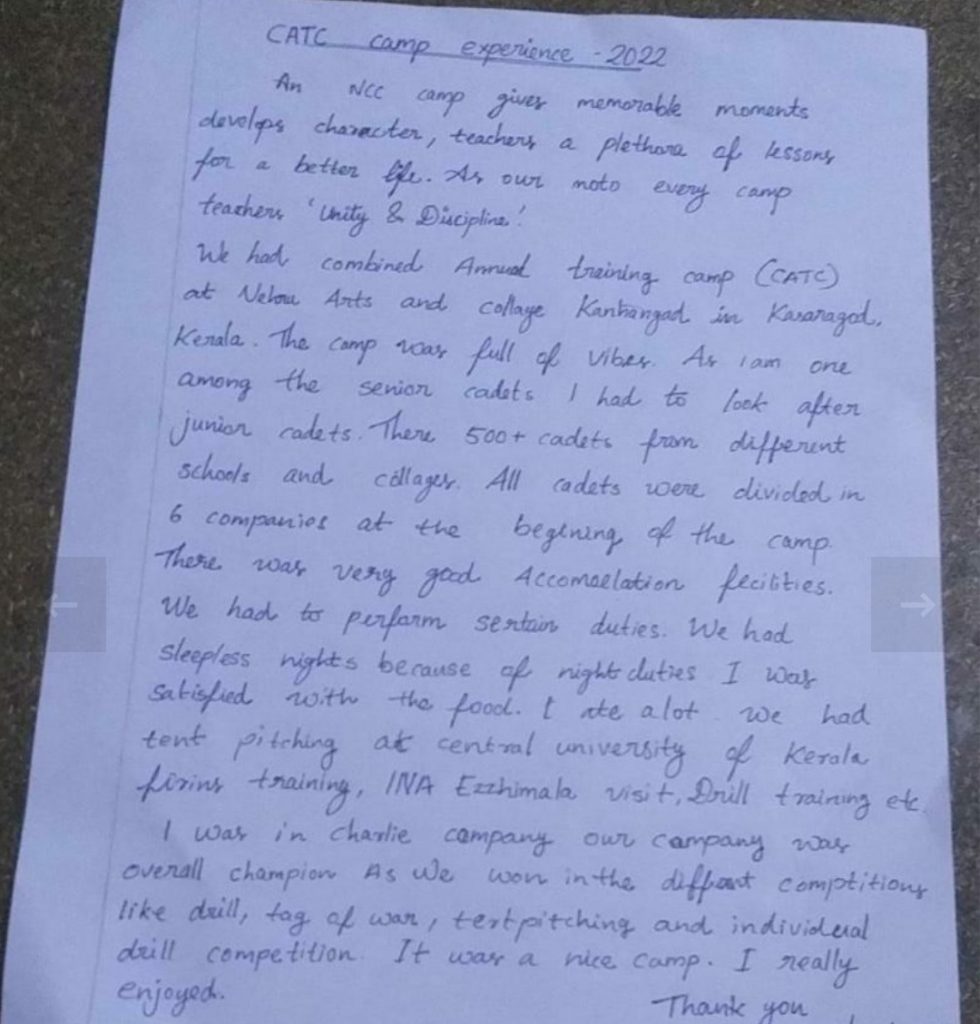 CATC camp experience - 2022
An NCC camp gives memorable moments
develops character, teachers a plethora of lessons
for a better life. As our moto every camp
teachers 'Unity & Discipline'
We had combined Annual training camp (CATC)
at Nehru Arts and collage Kanhangad in Kasaragod,
Kerala. The camp was full of vibes. As I am one
among the senior cadets I had to look after
junior cadets. There 500+ cadets from different
schools and collages. All cadets were divided in
6 companies at the begining of the camp.
There was very good Accomoelation fecilities.
We had to perform sertain duties. We had
sleepless nights because of night duties I was
satisfied with the food. I ate a lot. we had
tent pitching at central university of Kerala
firing training, INA Ezzhimala visit, Drill training etc.
I was in charlie company our company was
overall champion As we won in the diffrent comptitions
like drill, tag of war, tertpitching and individual
drill competition. It was a nice camp. I really
enjoyed.
Thank you